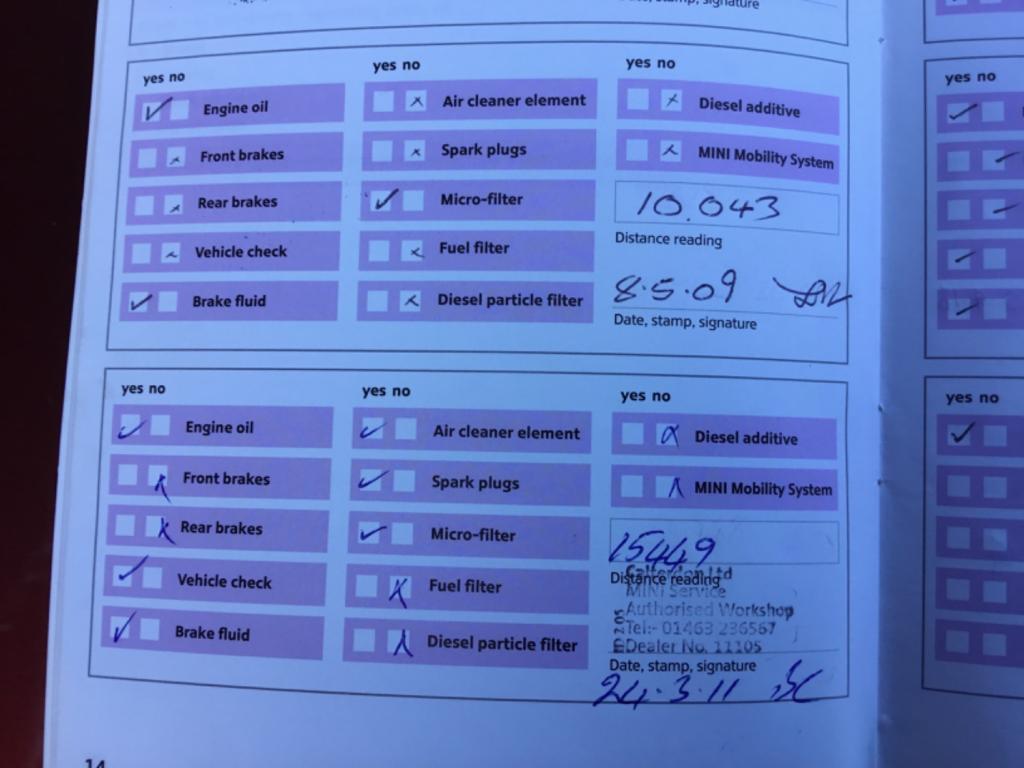 signature
yes no
Engine oil
Front brakes
Rear brakes
Vehicle check
Brake fluid
yes no
Air cleaner element
Spark plugs
Micro-filter
Fuel filter
Diesel particle filter
yes no
Diesel additive
MINI Mobility System
10.043
Distance reading
8.5.09
Date, stamp, signature
yes no
Engine oil
Front brakes
Rear brakes
Vehicle check
Brake fluid
yes no
Air cleaner element
Spark plugs
Micro-filter
Fuel filter
Diesel particle filter
yes no
Diesel additive
MINI Mobility System
15449
Distance reading
Ltd
MINI Service
Authorised Workshop
Tel:- 01463 236567
Dealer No. 11105
Date, stamp, signature
24.3.11
14
yes no
yes no